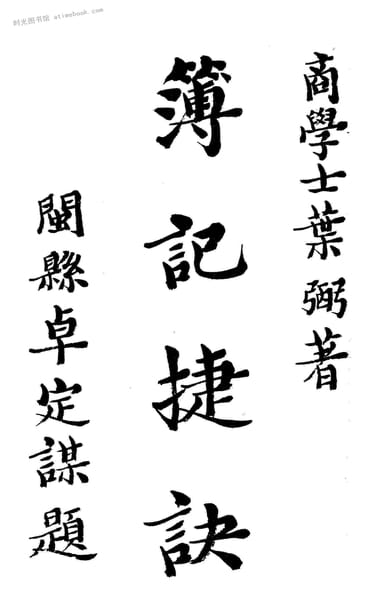 时光图书馆 - atimebook.com
商學士葉弼著
簿記捷訣
閩縣卓定謀題